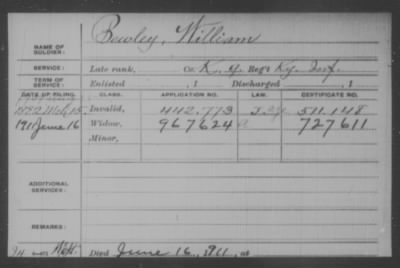 NAME OF SOLDIER: Bewley, William
SERVICE: Late rank, Co. K. 4 Reg't Ky. Inf.
TERM OF SERVICE: Enlisted , 1 Discharged , 1
DATE OF FILING. CLASS. APPLICATION NO. LAW. CERTIFICATE NO.
15 Invalid, 442.773 511.148
1911 June 16 Widow, 967624 727611
Minor,
ADDITIONAL SERVICES:
REMARKS:
Died June 16, 1911, at